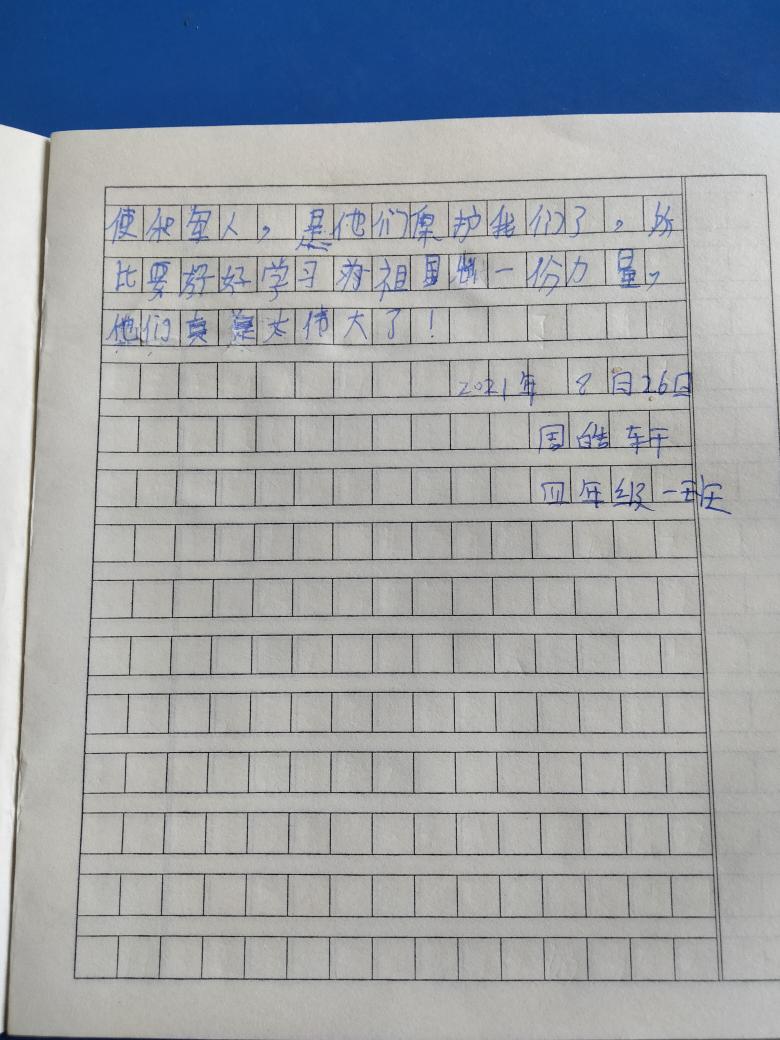 使和军人，是他们保护我们了，所
比要好好学习为祖国出一份力量，
他们真是太伟大了！
2021年 8月26日
周皓轩
四年级一班